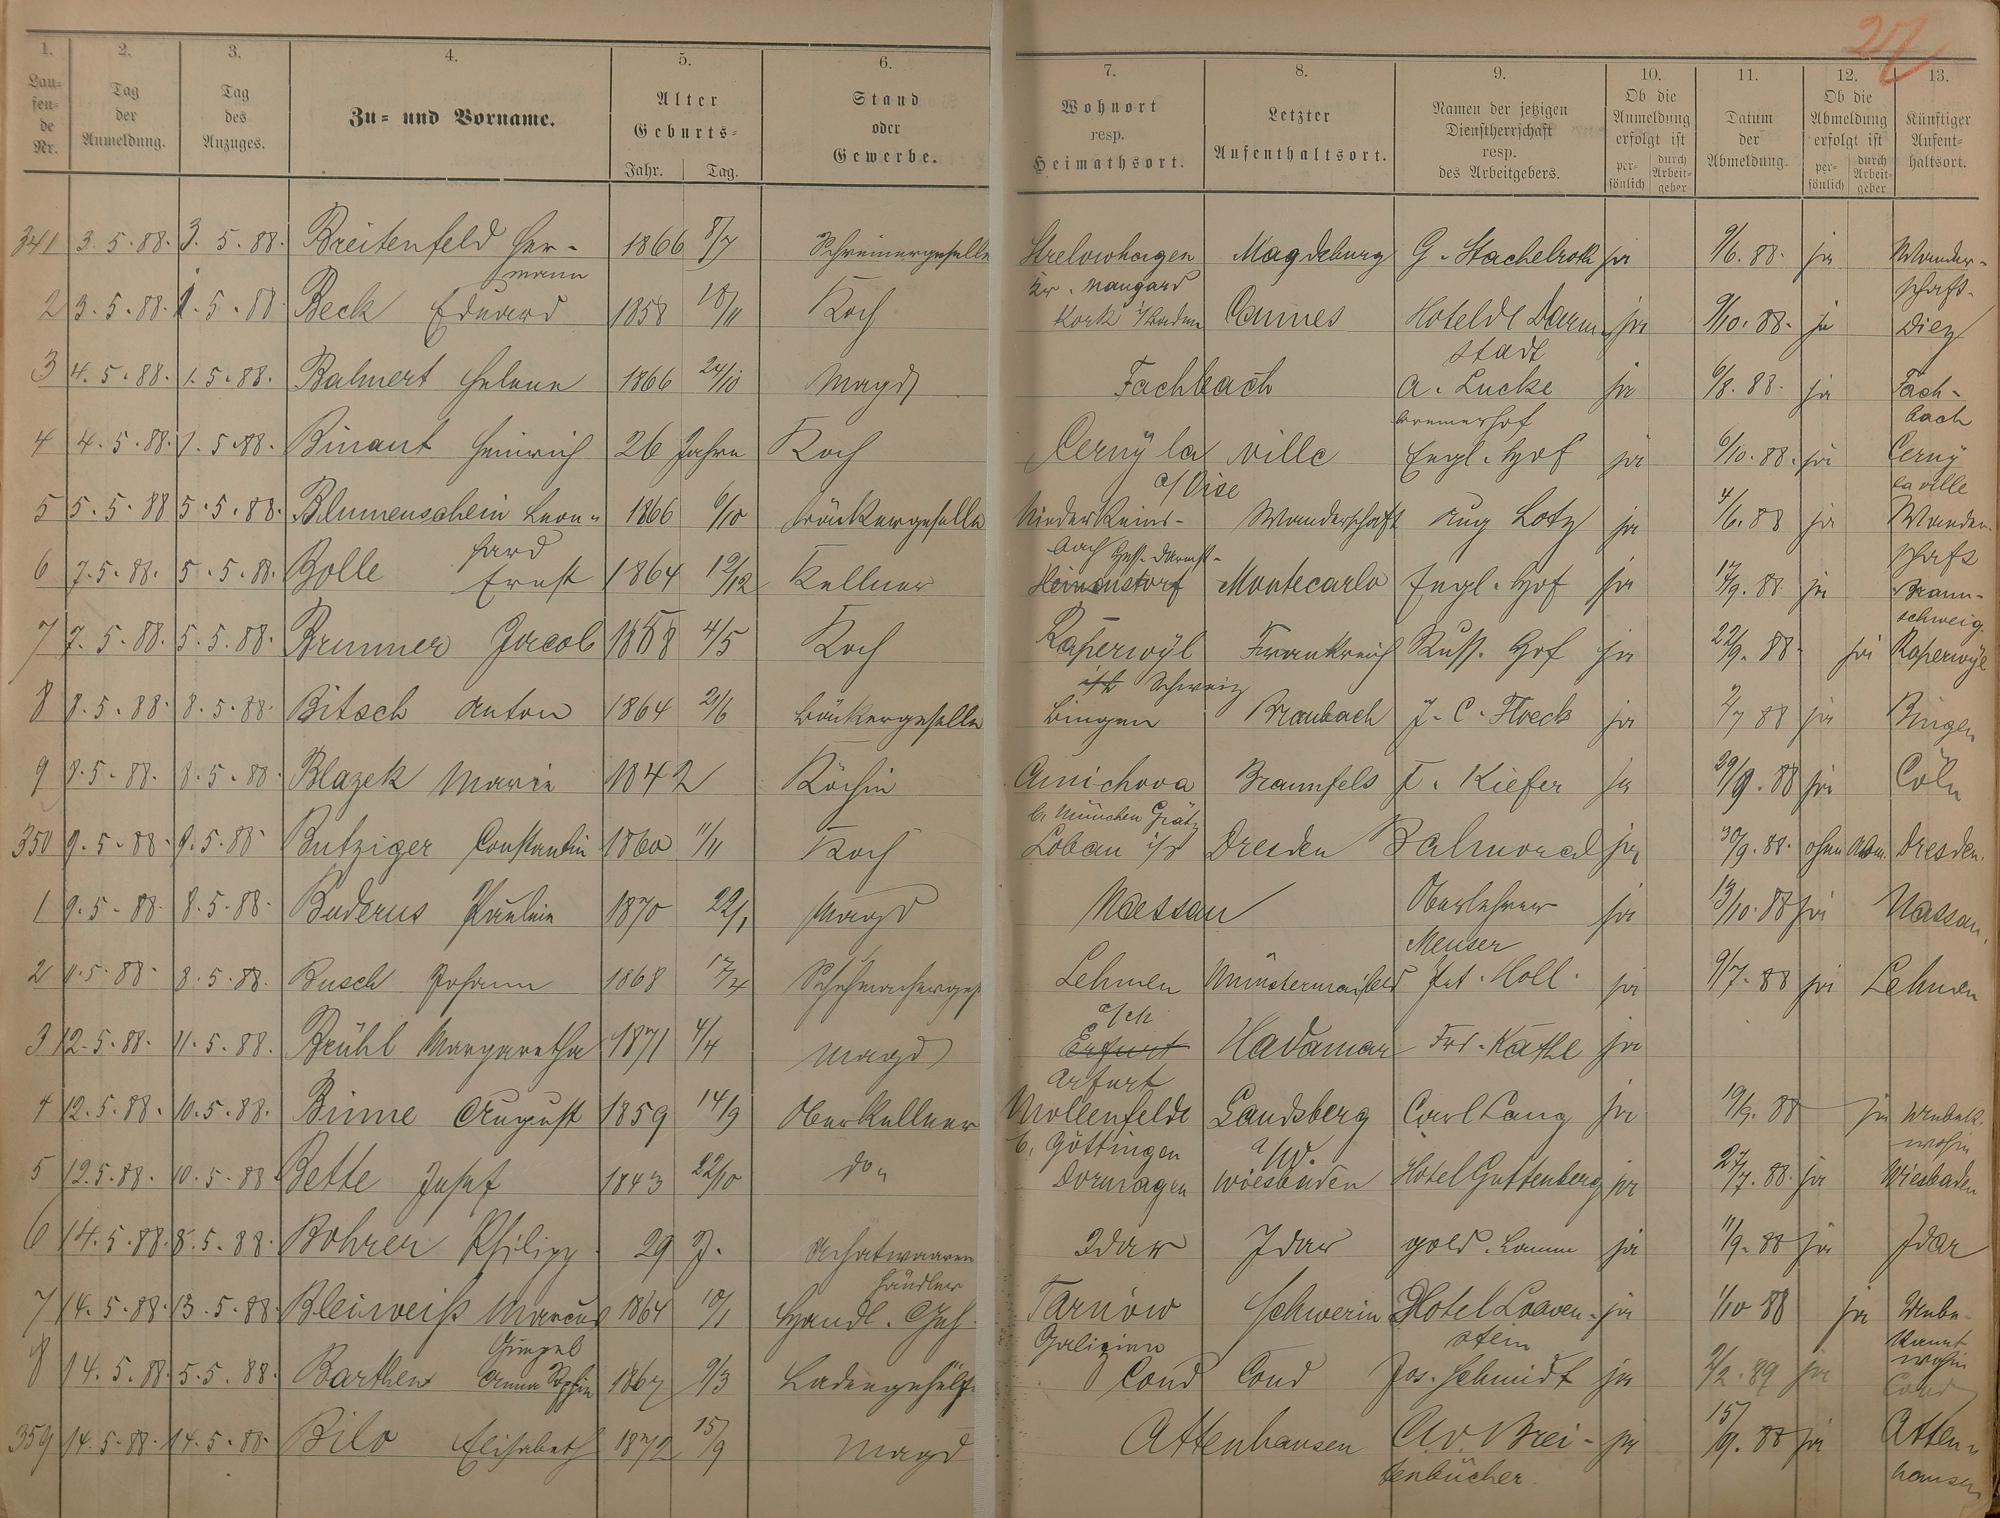 27
1. 2. 3. 4. 5. 6. 7. 8. 9. 10. 11. 12. 13.
Lau=
fen=
de
Nr.
Tag
der
Anmeldung.
Tag
des
Anzuges.
Zu= und Vorname.
Alter
Geburts=
Jahr. Tag.
Stand
oder
Gewerbe.
Wohnort
resp.
Heimathsort.
Letzter
Aufenthaltsort.
Namen der jetzigen
Dienstherrschaft
resp.
des Arbeitgebers.
Ob die
Anmeldung
erfolgt ist
per=
sönlich
durch
Arbeit=
geber
Datum
der
Abmeldung.
Ob die
Abmeldung
erfolgt ist
per=
sönlich
durch
Arbeit=
geber
Künftiger
Aufent=
haltsort.
341 3. 5. 88. 3. 5. 88. Breitenfeld Her- 1866 8/7 Schreinergeselle Strelowhagen Magdeburg G. Stachelroth ja 9/6. 88. ja Wander-
mann Kr. Naugard schaft.
2 3. 5. 88. 1. 5. 88. Beck Eduard 1858 18/11 Koch Kork i/Baden Cannes Hotel de Darm- ja 9/10. 88. ja Diez
stadt
3 4. 5. 88. 1. 5. 88. Bahnert Helene 1866 24/10 Magd Fachbach A. Lucke ja 6/8. 88. ja Fach-
Bremerhof bach
4 4. 5. 88. 1. 5. 88. Binant Heinrich 26 Jahre Koch Cerny la ville Engl. Hof ja 6/10. 88. ja Cerny
a/Oise la ville
5 5. 5. 88 5. 5. 88. Blumenschein Leon- 1866 6/10 Bäckergeselle Nieder Keins- Wanderschaft Aug Lotz ja 4/6. 88 ja Wander-
hard bach Hess. Darmst- schaft
6 7. 5. 88. 5. 5. 88. Bolle Ernst 1864 19/12 Kellner Montecarlo Engl. Hof ja 17/9. 88 ja Braun-
schweig.
7 7. 5. 88. 5. 5. 88. Brunner Jacob 1868 4/5 Koch Raperwyl Frankreich Russ. Hof ja 22/9. 88. ja Raperwyl
Schweiz
8 8. 5. 88. 8. 5. 88. Bitsch Anton 1864 21/6 Bäckergeselle Bingen Braubach J. C. Floeck ja 2/7 88 ja Bingen
9 8. 5. 88. 8. 5. 88. Blazek Marie 1842 Köchin Cinichova Braunfels F. Kiefer ja 29/9. 88 ja Cöln
b. München Grätz
350 9. 5. 88. 9. 5. 88 Butziger Constantin 1860 11/11 Koch Loban i/s Dresden Balmoral ja 30/9. 88. ohne Abm. Dresden.
1 9. 5. 88. 8. 5. 88. Buderus Pauline 1870 22/1 Magd Nassau Oberlehrer ja 13/10. 88 ja Nassau.
Meuser
2 11. 5. 88. 8. 5. 88. Busch Johann 1868 17/4 Schuhmacherges Lehmen Münstermaifeld Jat. Holl. ja 9/7. 88 ja Lehmen
3 12. 5. 88. 11. 5. 88. Brühl Margaretha 1871 4/4 Magd Erfurt Hadamar Frd. Käthe ja
Arfurt
4 12. 5. 88. 10. 5. 88. Binne August 1859 14/9 Oberkellner Mollenfelde Landsberg Carl Lang ja 19/9. 88 ja Unbek.
b. Göttingen a/W. wohin
5 12. 5. 88. 10. 5. 88. Bette Josef 1843 22/10 do Dormagen Wiesbaden Hotel Guttenberg ja 27/7. 88. ja Wiesbaden
6 14. 5. 88. 8. 5. 88. Bohrer Philipp 29 J. Achatwaaren Idar Idar gold. Lamm ja 11/9. 88 ja Idar
händler
7 14. 5. 88. 13. 5. 88. Bleiweiß Marcus 1864 10/1 Handl. Geh. Tarnow Schwerin Hotel Loaven- ja 1/10 88 ja Unbe-
Gimpel Galizien stein kannt
wohin
8 14. 5. 88. 5. 5. 88. Barthen Anna Sophie 1867 9/3 Ladengehülf. Cond Cond Jos. Schmidt ja 2/2. 89 ja Cond
359 14. 5. 88. 14. 5. 88 Bilo Elisabeth 1872 15/9 Magd Attenhausen A. v. Brei- ja 15/9. 88 ja Atten-
tenbücher. hausen